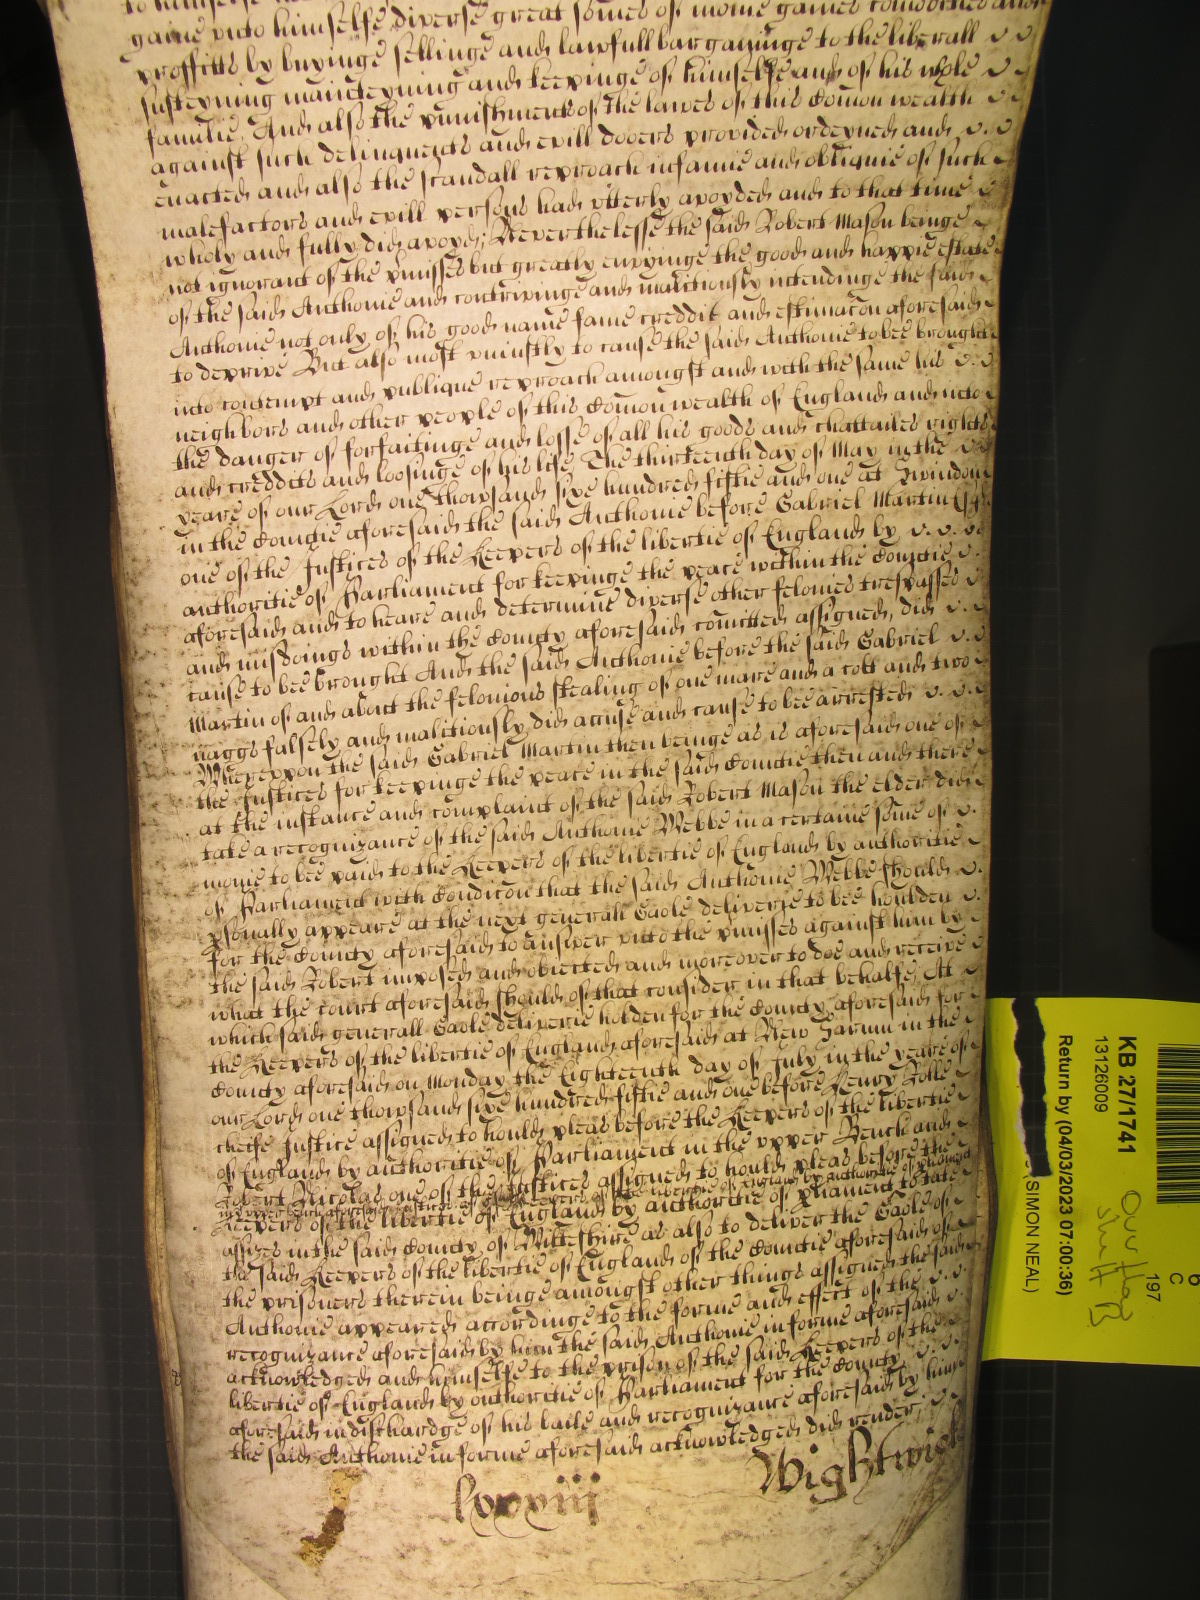 gaine unto himselfe diverse great somes of monie gaines comodities and
proffitts by buyinge sellinge and lawfull bargayninge to the liberall
susteyning mainteyning and keepinge of himselfe and of his whole
familie, And also the punishments of the lawes of this Comon wealth
against such delinquents and evill dooers provided ordeyned and
enacted and also the scandall reproach infamie and obliquie of such
malefactors and evill persons had utterly avoyded and to that time
wholy and fully did avoyd; Neverthelesse the said Robert Mason beinge
not ignorant of the pmisses but greatly envyinge the good and happie estate
of the said Anthonie and contrivinge and malitiously intendinge the said
Anthonie not only of his good name fame creddit and estimacon aforesaid
to deprive But also most uniustly to cause the said Anthonie to bee brought
into contempt and publique reproach amongst and with the same his
neighbors and other people of this Comon wealth of England and into
the danger of forfaitinge and losse of all his goods and chattailes rights
and creddits and loosinge of his life, The thirteenth day of May in the
yeare of our Lord one thowsand sixe hundred fiftie and one at Swindon
in the Countie aforesaid the said Anthonie before Gabriel Martin Esqr
one of the Justices of the Keepers of the libertie of England by
authoritie of Parliament for keepinge the peace within the Countie
aforesaid and to heare and determine diverse other felonies trespasses
and misdoings within the County aforesaid comitted assigned, did
cause to bee brought And the said Anthonie before the said Gabriel
Martin of and about the felonious stealing of one mare and a colt and two
naggs falsely and malitiously did accuse and cause to bee arrested
Whereuppon the said Gabriel Martin then beinge as is aforesaid one of
the Justices for keepinge the peace in the said Countie then and there
at the instance and complaint of the said Robert Mason the elder did
take a recognizance of the said Anthonie Webbe in a certaine some of
monie to bee paid to the Keepers of the libertie of England by authoritie
of Parliament with Condicon that the said Anthonie Webbe should
psonally appeare at the next generall Gaole deliverie to bee houlden
for the County aforesaid to answer unto the pmisses against him by
the said Robert imposed and obiected and moreover to doe and receive
what the court aforesaid should of that consider in that behalfe, At
which said generall Gaole deliverie holden for the County aforesaid for
the Keepers of the libertie of England aforesaid at New Sarum in the
County aforesaid on Monday the Eighteenth day of July in the yeare of
our Lord one thowsand sixe hundred fiftie and one before Henry Rolle
cheife Justice assigned to hould pleas before the Keepers of the libertie
of England by authoritie of Parliament in the upper Bench and
Robert Nicolas one of the Justices assigned to hould pleas before the
Keepers of the libertie of England by authoritie of pliament
in upper bench aforesaid Justices of the said Keepers of the libertie of England by authoritie of pliament to take
assizes in the said County of Wilteshire as also to deliver the Gaole of
the said Keepers of the libertie of England of the Countie aforesaid of
the prisoners therein beinge amongst other things assigned the said
Anthonie appeared accordinge to the forme and effect of the
recognizance aforesaid by him the said Anthonie in forme aforesaid
acknowledged and himselfe to the prison of the said Keepers of the
libertie of England by authoritie of Parliament for the County
aforesaid in dischardge of his baile and recognizance aforesaid by him
the said Anthonie in forme aforesaid acknowledged did render,
Wightwick
lxxxiii
KB 27/1741
13126009
Return by (04/03/2023 07:00:36)
SIMON NEAL)
197
C